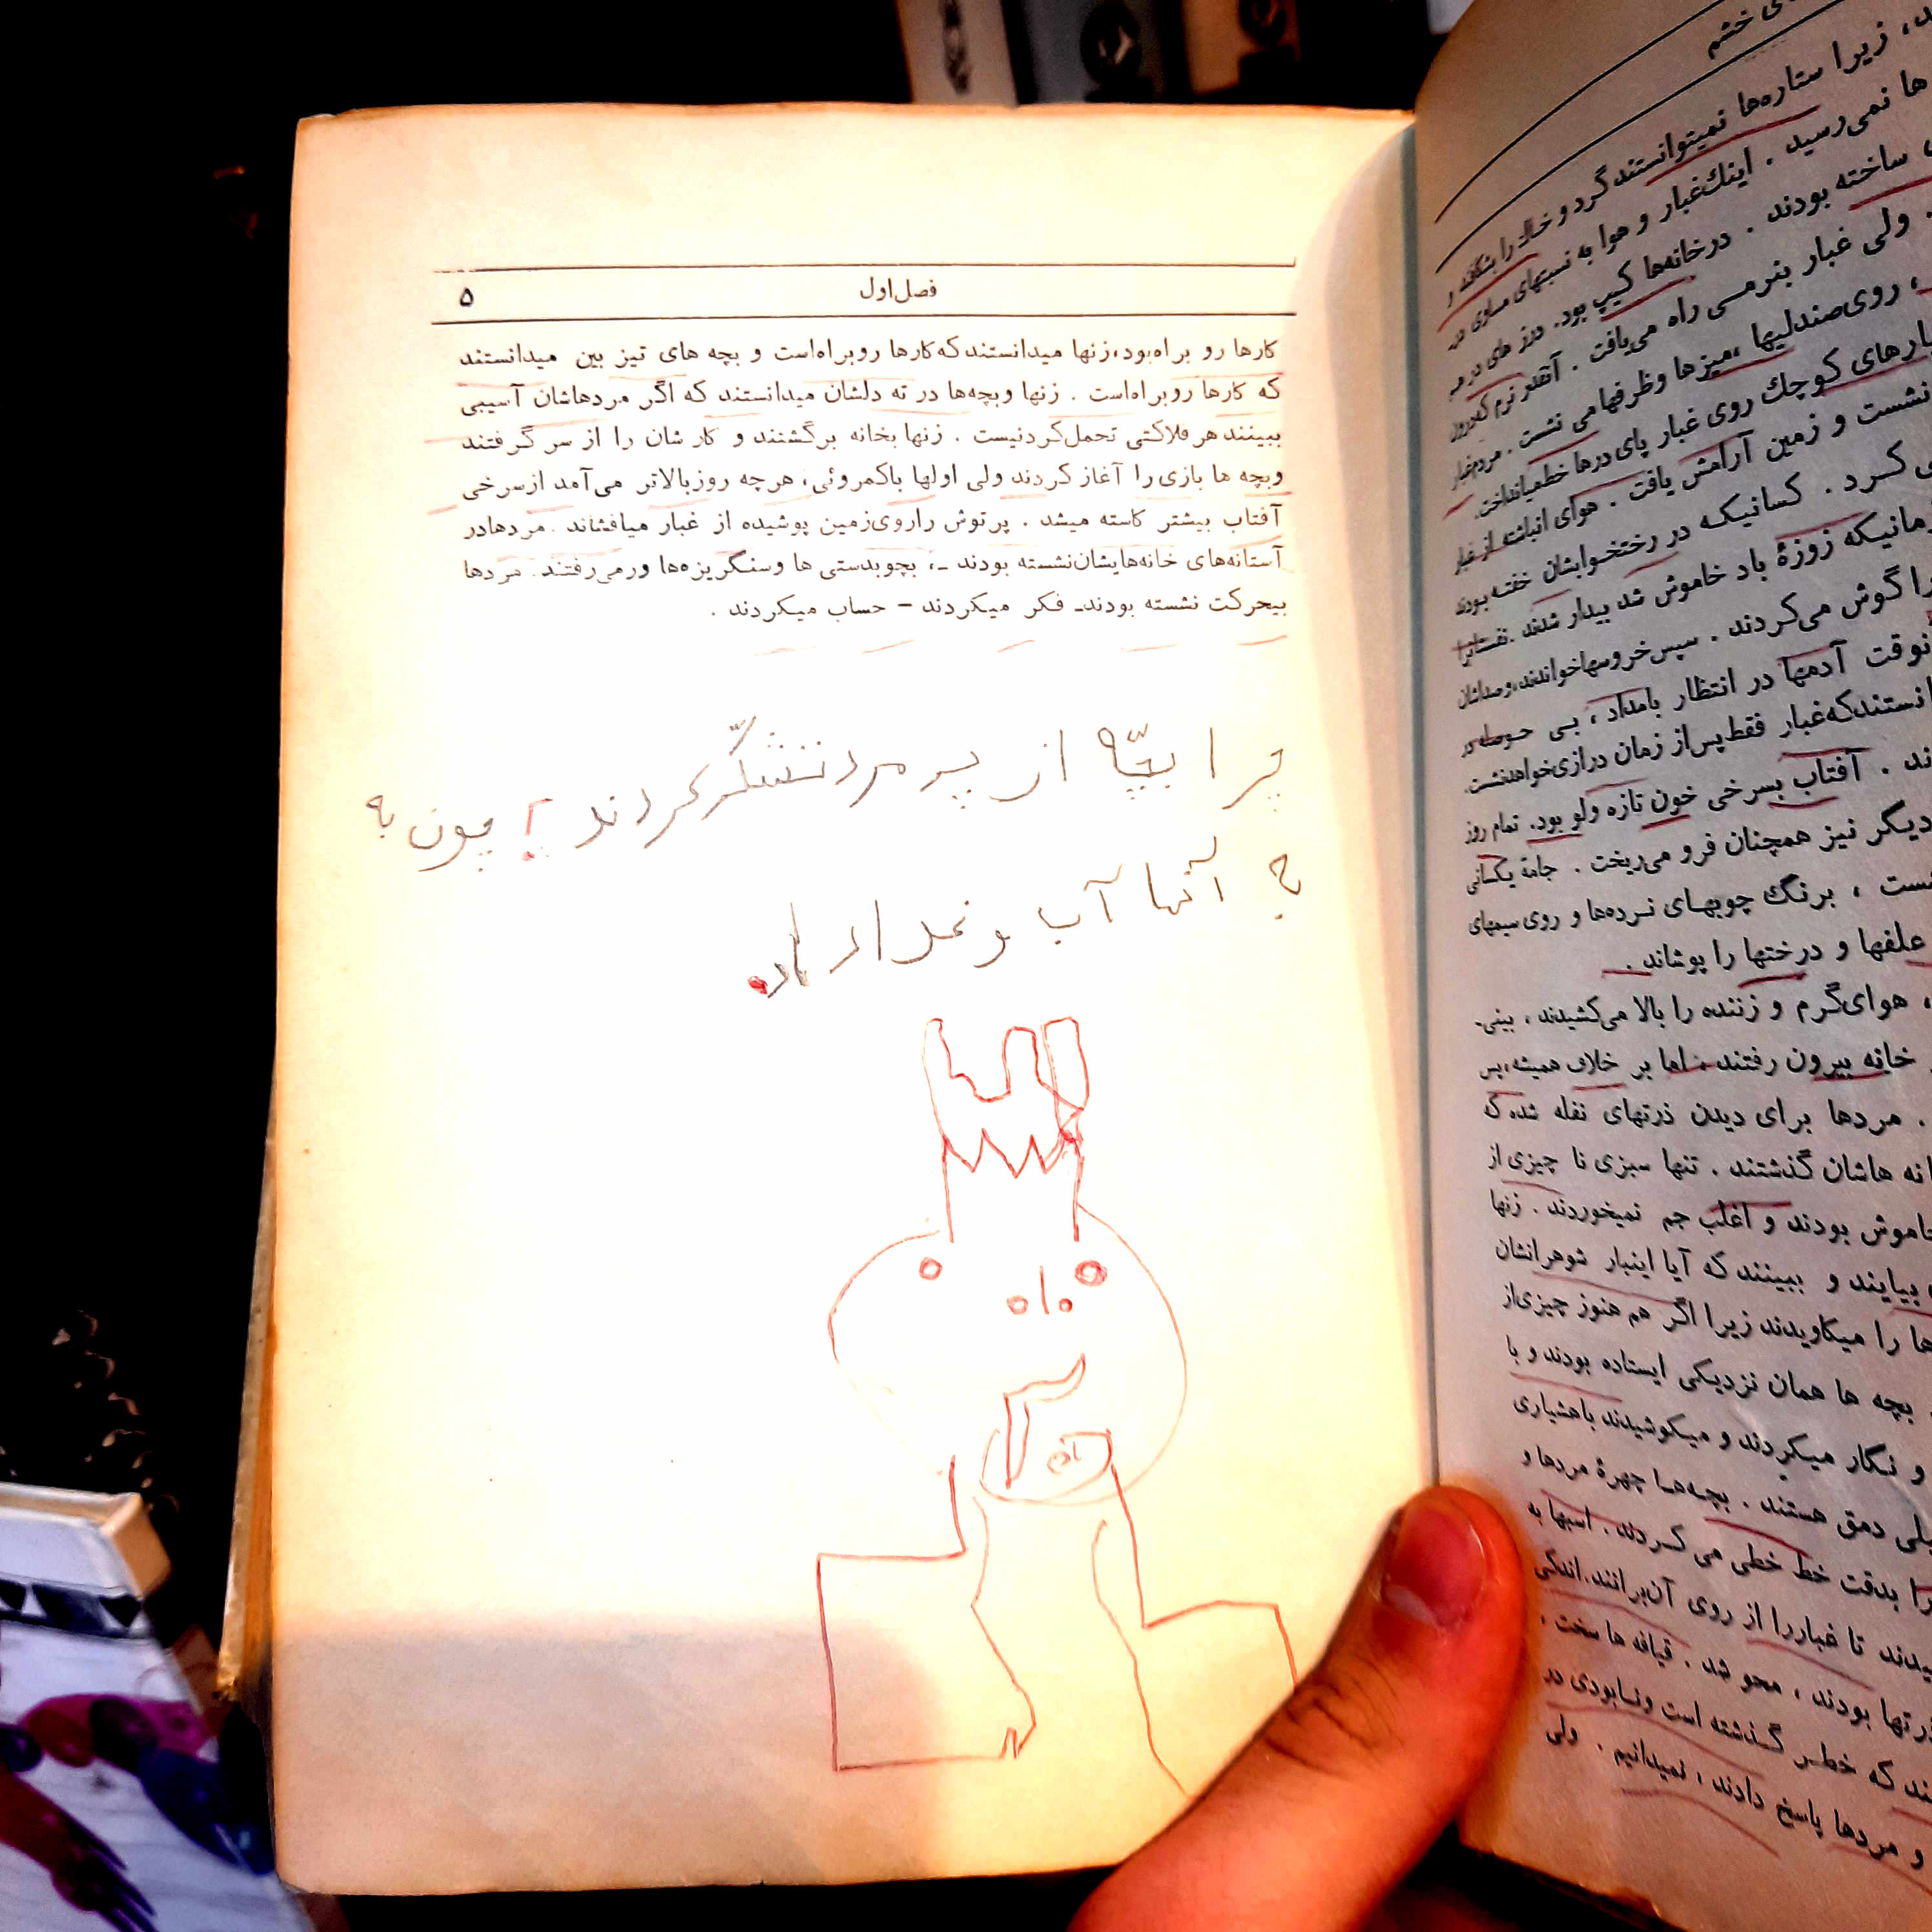 فصل اول
۵
کارها رو براه بود، زنها میدانستند که کارها روبراه است و بچه های تیز بین میدانستند
که کارها روبراه است . زنها وبچه‌ها در ته دلشان میدانستند که اگر مردهاشان آسیبی
ببینند هر فلاکتی تحمل کردنیست . زنها بخانه برگشتند و کارشان را از سر گرفتند
وبچه ها بازی را آغاز کردند ولی اولها باکمروئی، هرچه روز بالاتر می‌آمد از سرخی
آفتاب بیشتر کاسته میشد . پرتوش را روی زمین پوشیده از غبار میافشاند . مردها در
آستانه‌های خانه‌هایشان نشسته بودند ـ، بچوبدستی ها وسنگریزه‌ها ورمی‌رفتند . مردها
بیحرکت نشسته بودند ـ فکر میکردند – حساب میکردند .
چرا بچّه از پیر مرد تشکّر کردند ؟ چون به
به آنها آب و داد.
ی خشم
زیرا ستاره‌ها نمیتوانستند گرد و خاک را بشکافند و
ها نمی‌رسید . اینک غبار و هوا به نسبتهای مساوی در
ساخته بودند . درخانه‌ها کیپ بود. درز های در هم
ولی غبار بنرمی راه می‌یافت . آنقدر نرم که درون
، روی صندلیها ، میزها وظرفها می نشست . مردم غبار
بارهای کوچک روی غبار پای درها خط میانداخت.
نشست و زمین آرامش یافت . هوای انباشته از غبار
ی کرد . کسانیکه در رختخوابشان خفته بودند
زمانیکه زوزهٔ باد خاموش شد بیدار شدند . نفسشانرا
را گوش می‌کردند . سپس خروسها خواندند، وصداشان
آنوقت آدمها در انتظار بامداد ، بی حوصله در
دانستند که غبار فقط پس از زمان درازی خواهد نشست.
ند . آفتاب بسرخی خون تازه ولو بود. تمام روز
دیگر نیز همچنان فرو می‌ریخت . جامهٔ یکسانی
نشست ، برنگ چوبهای نرده‌ها و روی سیمهای
علفها و درختها را پوشاند .
، هوای گرم و زننده را بالا می‌کشیدند ، بینی-
خانه بیرون رفتند، اما بر خلاف همیشه، پس
. مردها برای دیدن ذرتهای نفله شده که
انه هاشان گذشتند . تنها سبزی تا چیزی از
خاموش بودند و اغلب جم نمیخوردند . زنها
بیایند و ببینند که آیا اینبار شوهرانشان
ها را میکاویدند زیرا اگر هم هنوز چیزی از
بچه ها همان نزدیکی ایستاده بودند و با
و نگار میکردند و میکوشیدند باهشیاری
یلی دمق هستند . بچه‌ها چهرهٔ مردها و
را بدقت خط خطی می کردند . اسبها به
یدند تا غباررا از روی آن برانند. اندکی
ذرتها بودند ، محو شد . قیافه ها سخت ،
ند که خطر گذشته است ونابودی در
و مردها پاسخ دادند ، نمیدانیم . ولی